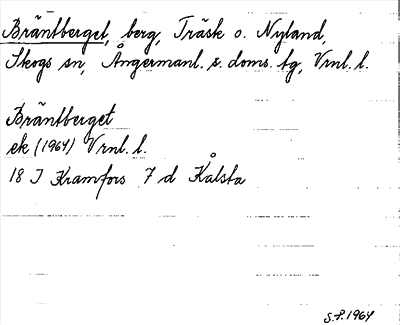 Bräntberget, berg, Träsk o. Nyland,
Skogs sn, Ångermanl. s. doms. tg, Vrnl. l.
Bräntberget
ek (1964) Vrnl. l.
18 I Kramfors 7 d Kålsta
S.P. 1964